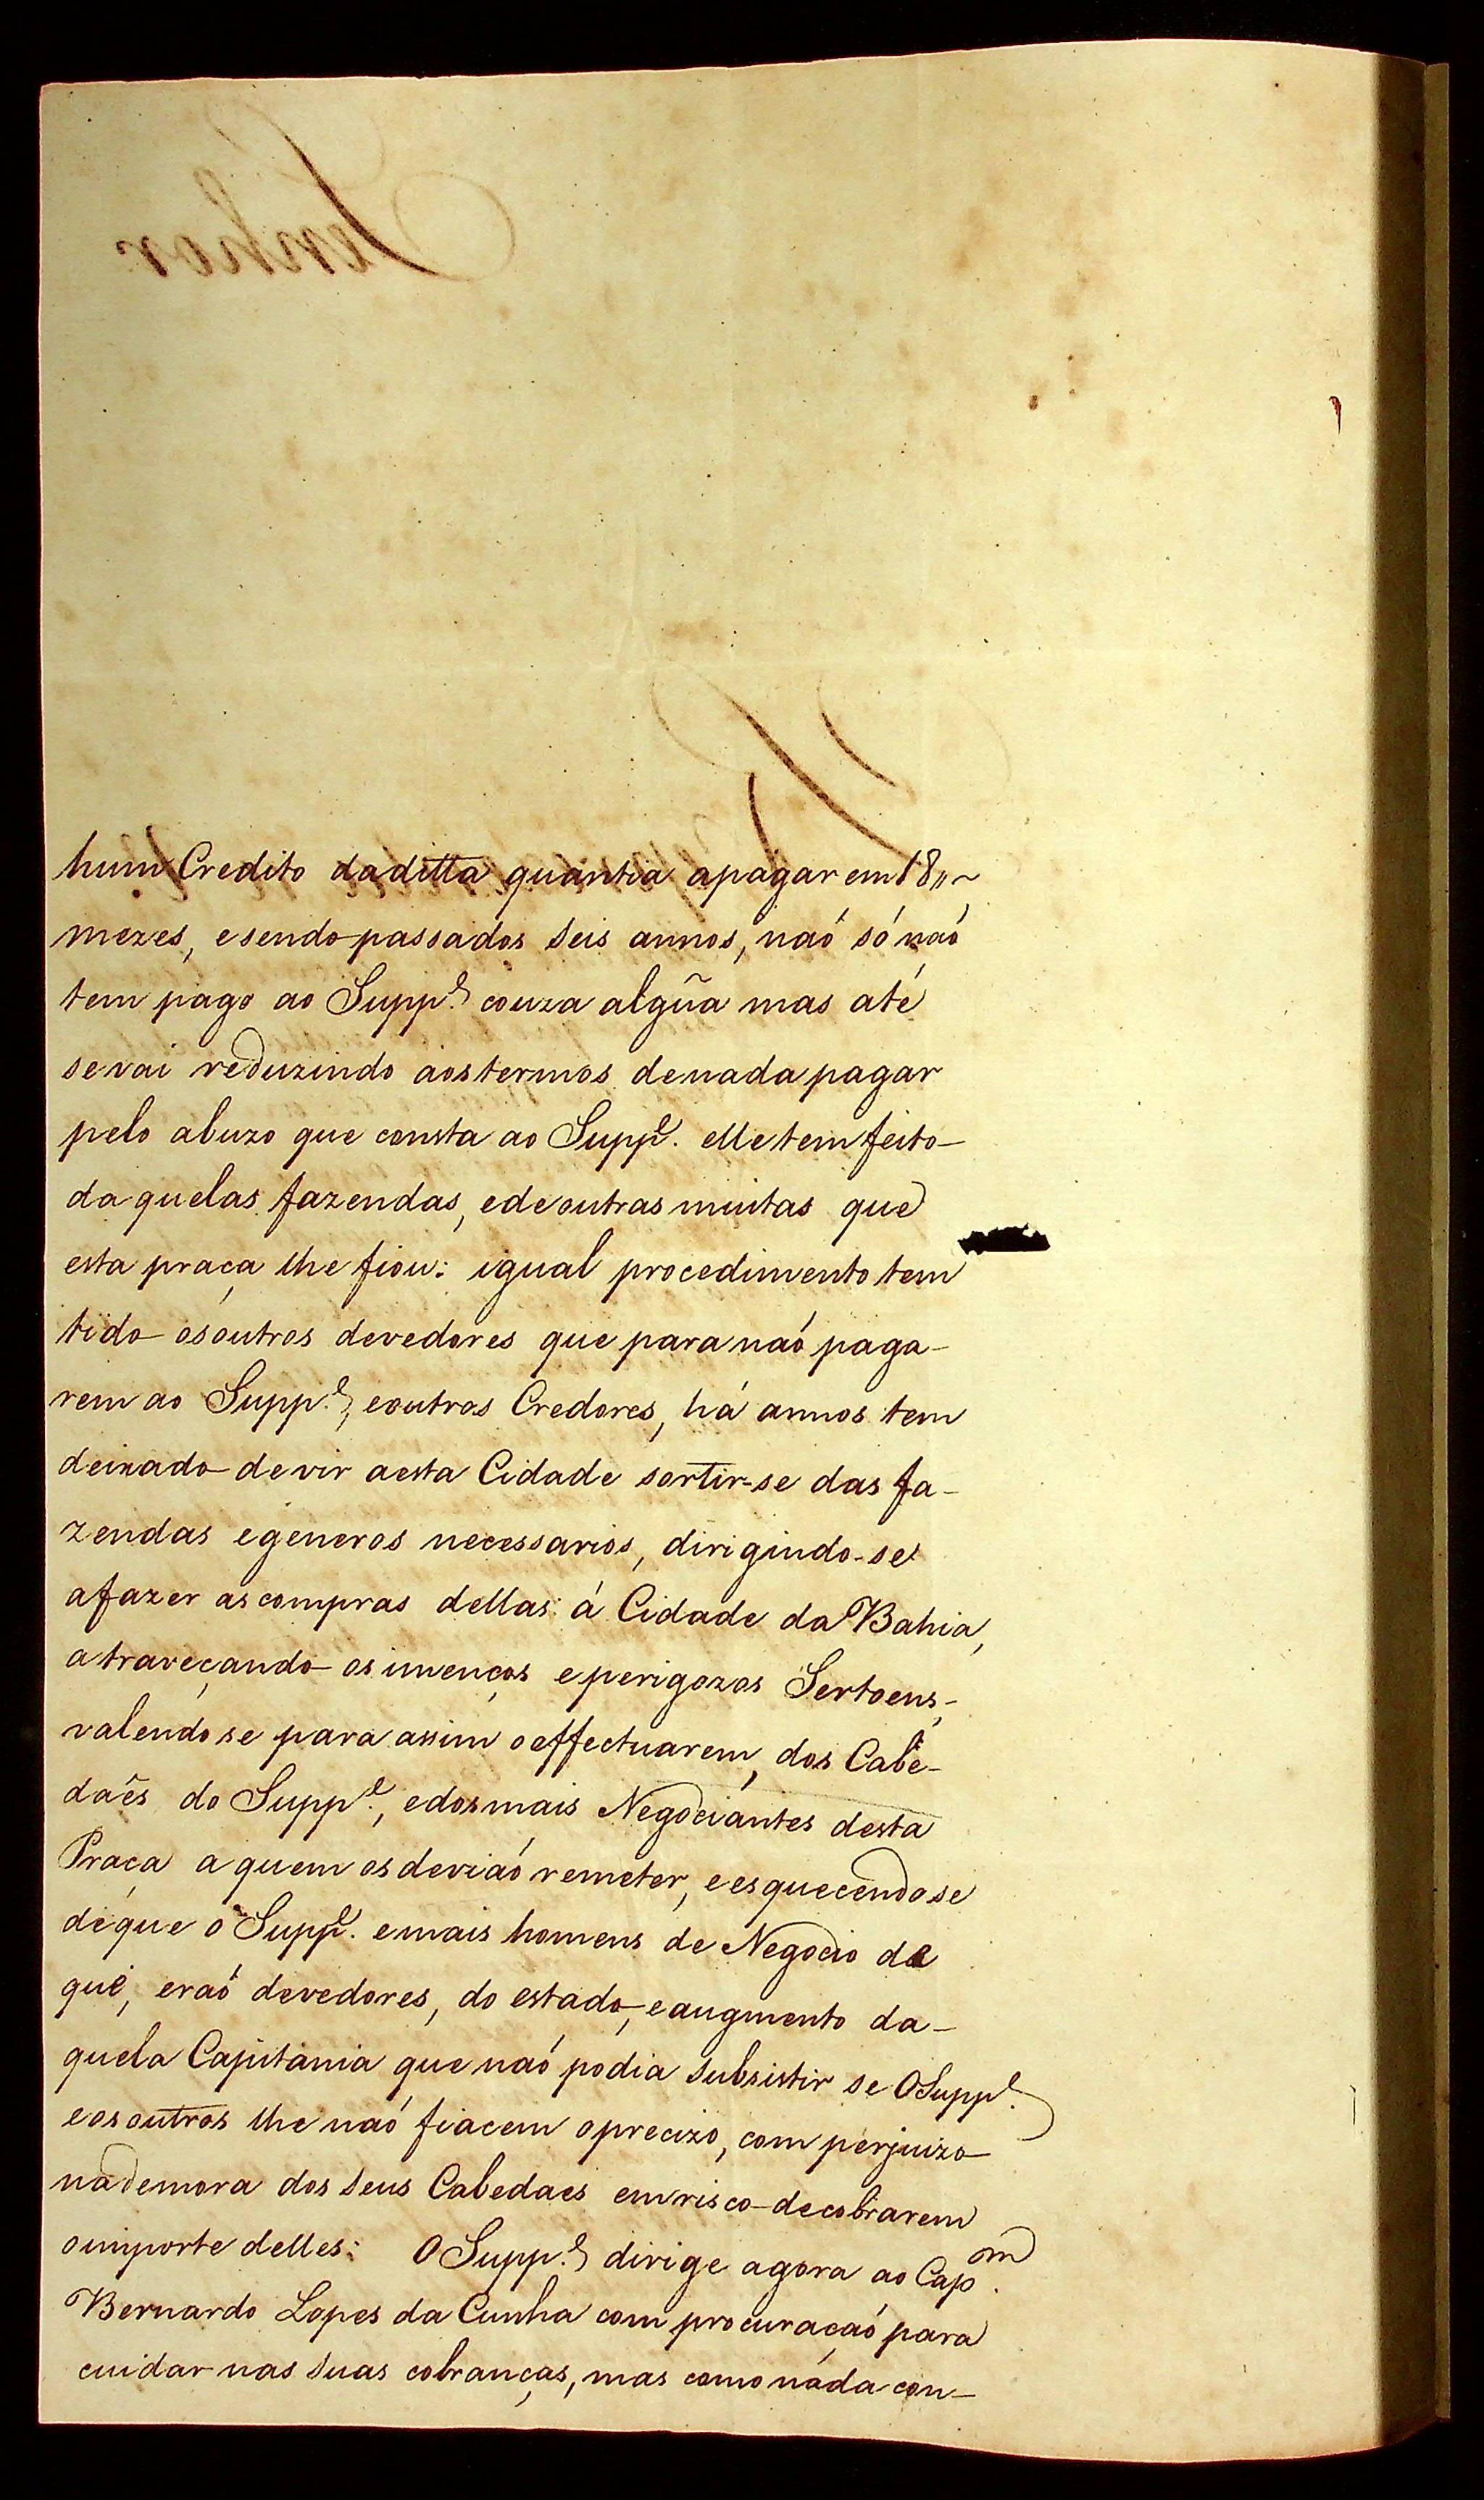 hum Credito daditta quantia apagar em 18,, ~
mezes, esendo passados seis annos, naó só naó
tem pago ao Supp.e couza algũa mas até
sevai reduzindo aos termos denada pagar
pelo abuzo que consta ao Supp.e elle tem feito
daquelas fazendas, edeoutras muitas que
esta praça lhe fiou: igual procedimento tem
tido osoutros devedores que para naó paga-
rem ao Supp.e, eoutros Credores, há annos tem
deixado devir aesta Cidade sortir-se das fa-
zendas egeneros necessarios, dirigindo-se
afazer ascompras dellas á Cidade da Bahia,
atraveçando os imenços eperigozos Sertoens,
valendose para assim oeffectuarem, dos Cabe-
daẽs do Supp.e, edosmais Negociantes desta
Praça aquem osdeviaó remeter, eesquecendose
deque o Supp.e emais homens de Negocio de
que, eraó devedores, do estado, eaugmento da-
quela Capitania que naó podia subsistir se OSupp.e
eosoutros lhe naó fiacem oprecizo, com perjuizo
nademora dos seus Cabedaes emrisco decobrarem
oimporte delles: OSupp.e dirige agora ao Cap.m
Bernardo Lopes da Cunha com procuraçaó para
cuidar nas suas cobranças, mas como nada con-